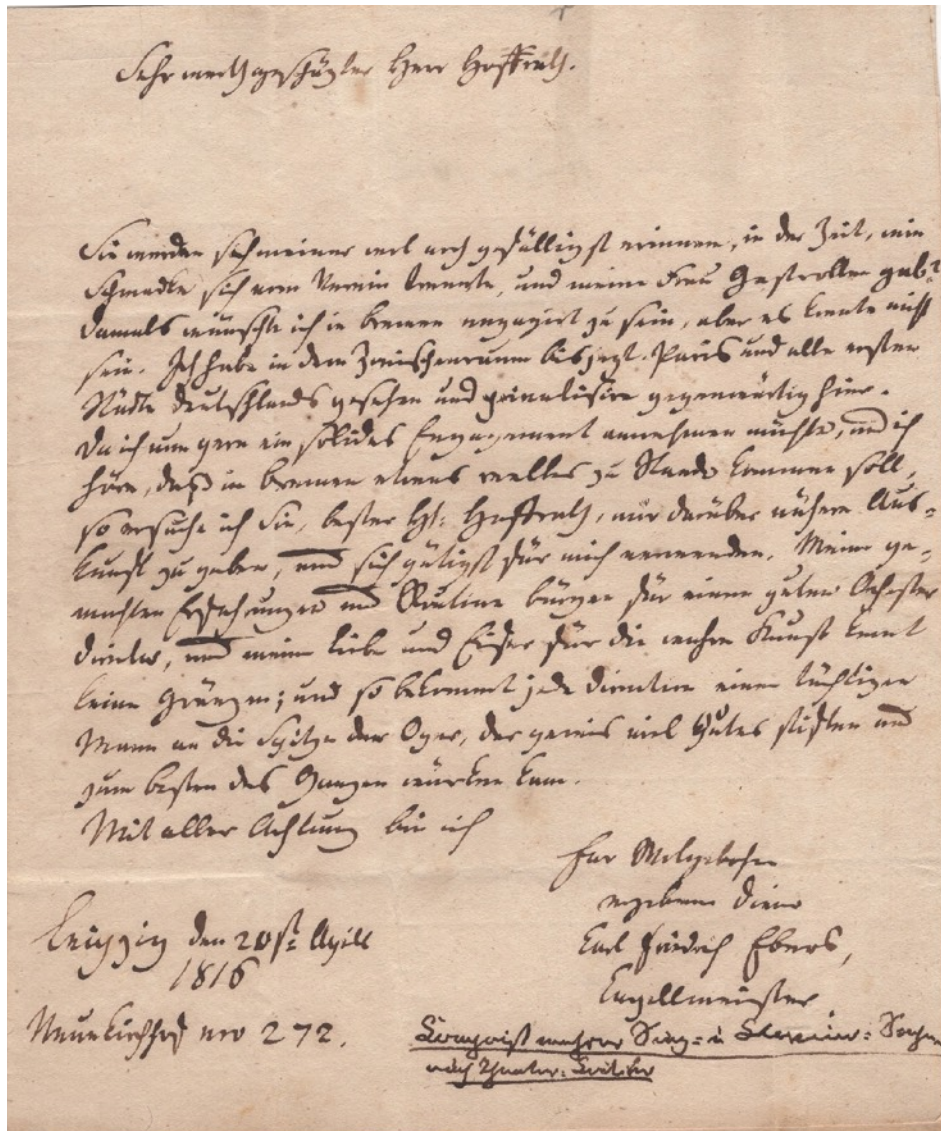 Sehr werthgeschäzter Herr Hoffrath.
Sie werden sich meiner wol noch gefälligst erinnern, in der Zeit, wie
Schmedke sich vom Verein trennte, und meine Frau Gastrollen gab?
damals wünschte ich in bremen engagirt zu sein, aber es konnte nicht
sein. Ich habe in dem Zwischenraum bis jezt Paris und alle ersten
Städte deutschlands gesehen und privatisire gegenwärtig hier.
Da ich nun gern ein solides Engagement annehmen möchte, und ich
höre, daß in bremen etwas reelles zu Stande kommen soll,
so ersuche ich Sie, bester Hr: Hoffrath, mir darüber nähere Aus-
kunft zu geben, und sich gütigst für mich verwenden. Meine ge-
machten Erfahrungen und Routine bürgen für einen guten Orchester
director, und meine Liebe und Eifer für die wahre Kunst kennt
keine Gränzen; und so bekommt jede direction einen tüchtigen
Mann an die Spitze der Oper, der gewis viel Gutes stiften und
zum besten des Ganzen würken kann.
Mit aller Achtung bin ich
Euer Wolgebohren
ergebener Diener
Carl Friedrich Ebers,
Capellmeister
Leipzig den 20st. Aprill
1816
Neuekirchhof nro 272.
Componist mehrer Sing- u Clavier-Sachen
auch Theater-